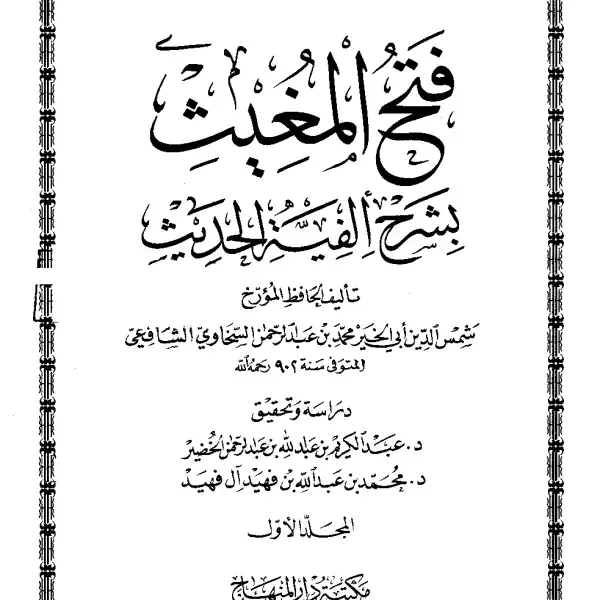 فتح المغيث
بشرح ألفية الحديث
تأليف الحافظ المؤرخ
شمس الدين أبي الخير محمد بن عبد الرحمن السخاوي الشافعي
المتوفى سنة ٩٠٢ رحمه الله
دراسة وتحقيق
د. عبد الكريم بن عبد الله بن عبد الرحمن الخضير
د. محمد بن عبد الله بن فهيد آل فهيد
المجلد الأول
مكتبة دار المنهاج